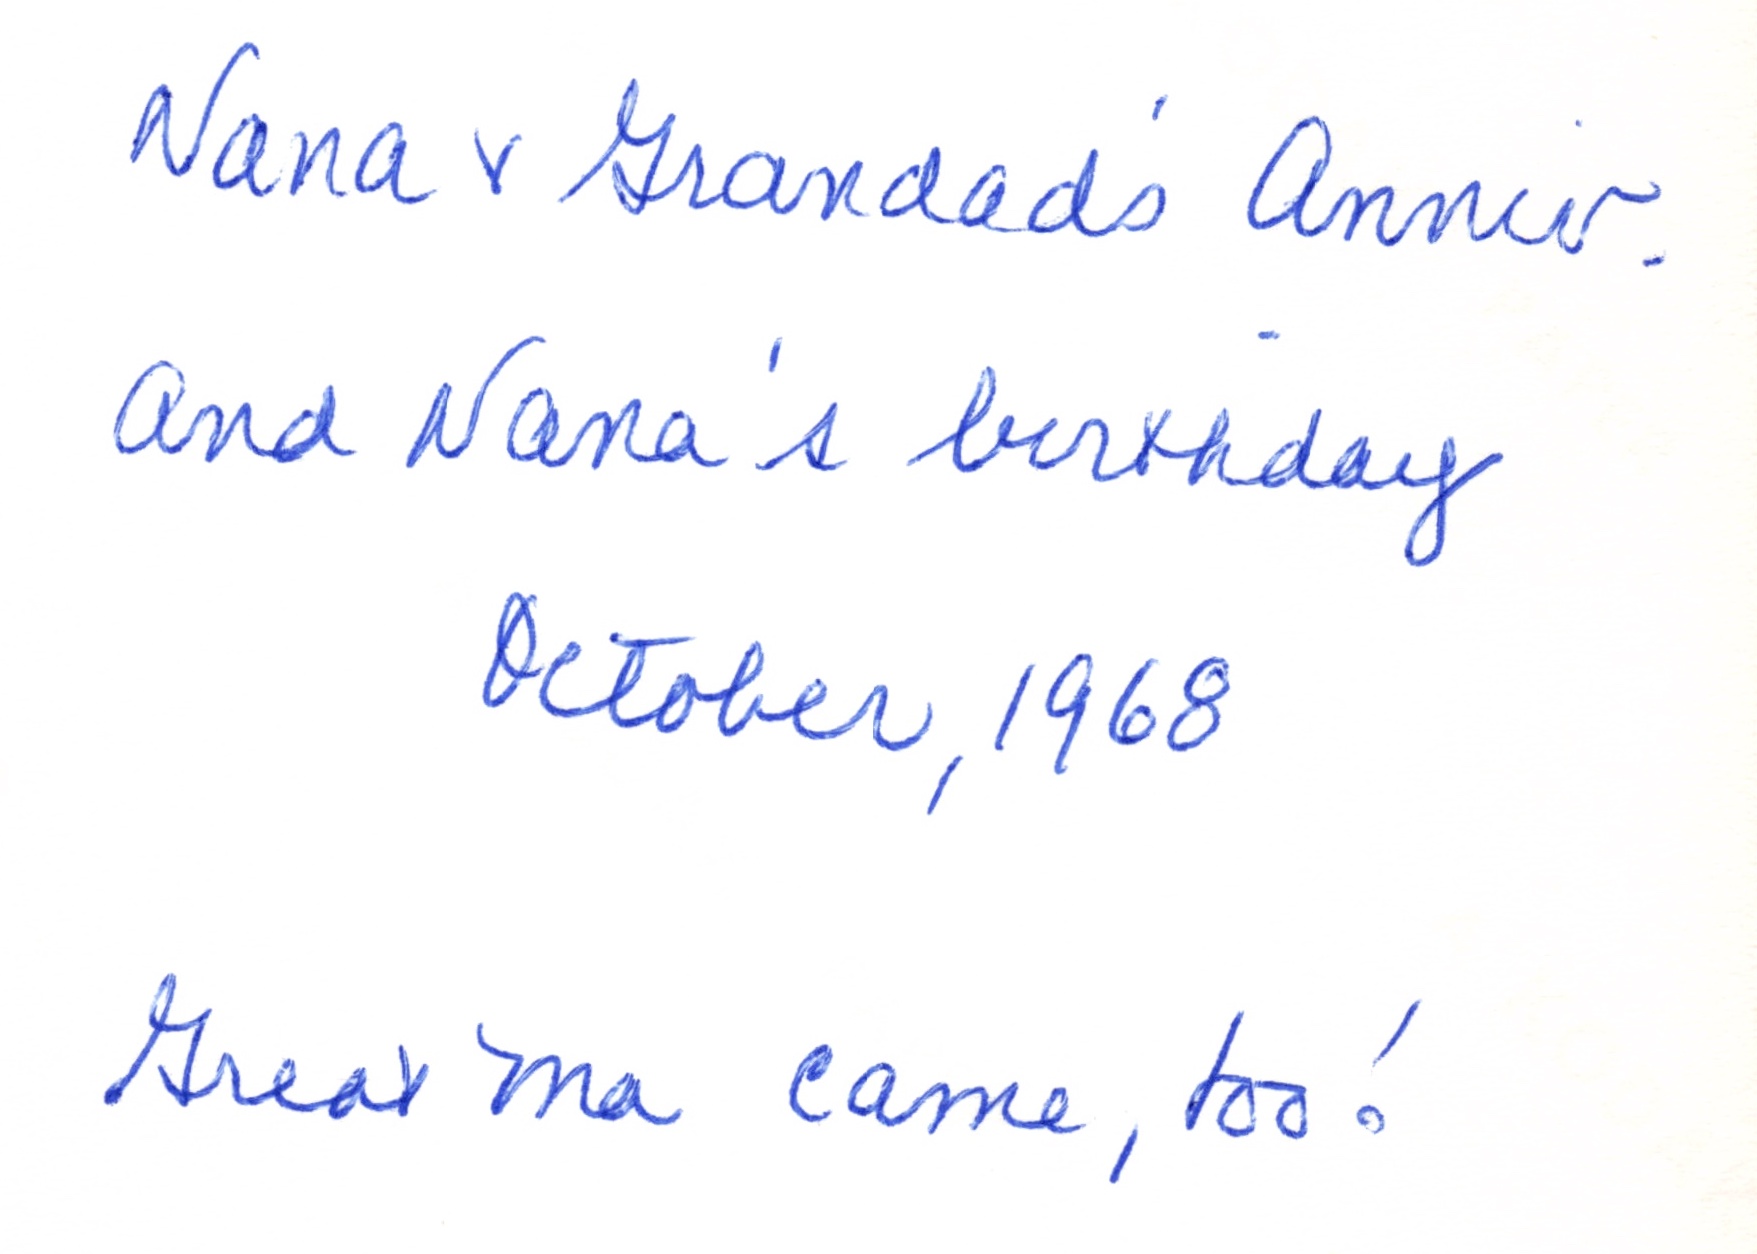 Nana & Grandad's Anniv.
And Nana's birthday
October, 1968
Great Ma came, too!